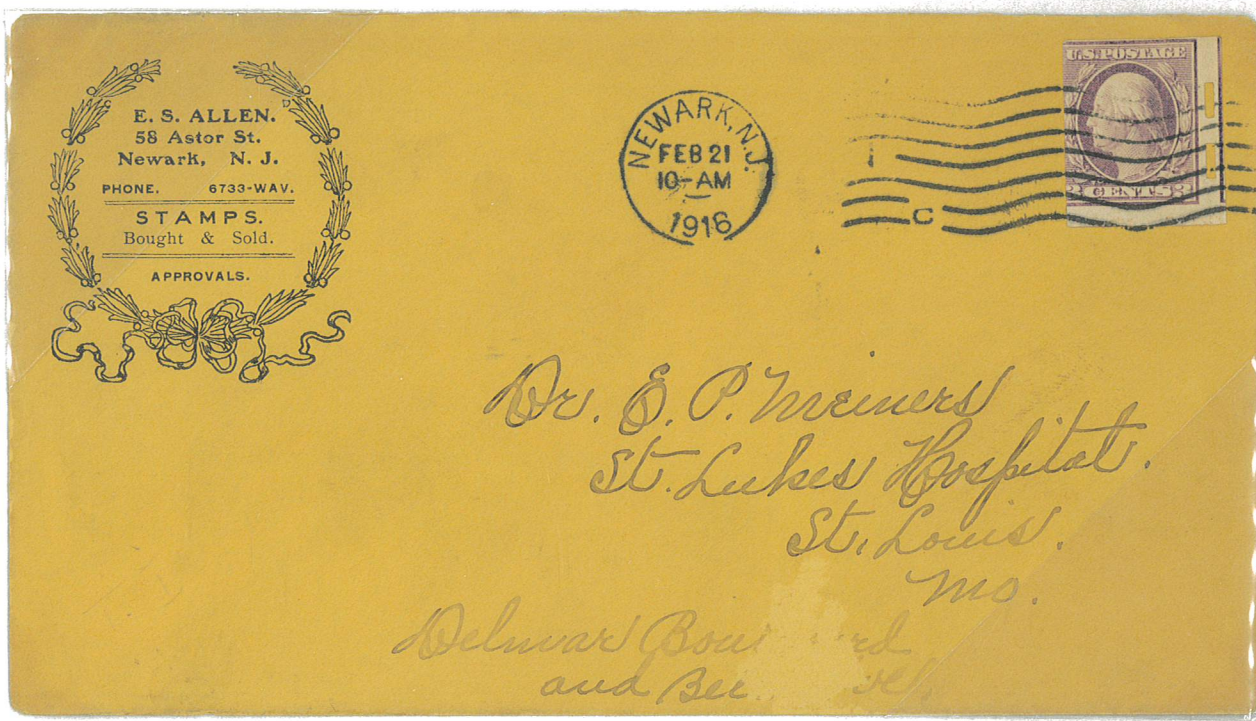 E. S. ALLEN.
58 Astor St.
Newark, N. J.
PHONE. 6733-WAV.
STAMPS.
Bought & Sold.
APPROVALS.
NEWARK, N.J.
FEB 21
10-AM
1916
C
U.S. POSTAGE
3 CENTS 3
Dr. E. P. Meiners
St. Lukes Hospital.
St. Louis.
Mo.
Delmar
and